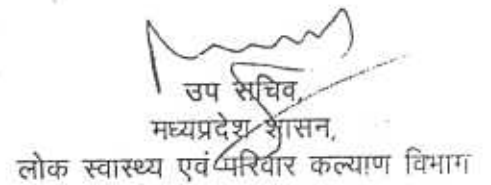 उप सचिव,
मध्यप्रदेश शासन,
लोक स्वास्थ्य एवं परिवार कल्याण विभाग